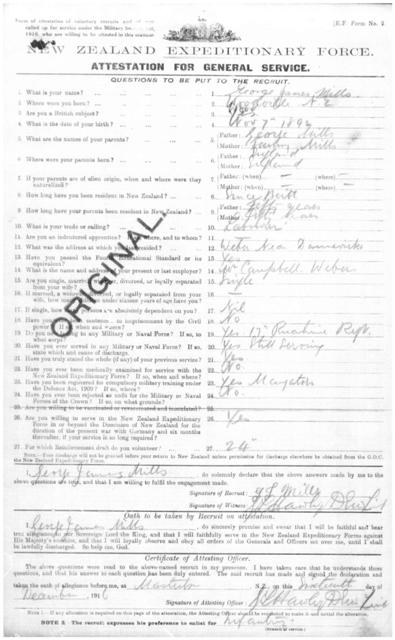 Form of attestation of voluntary recruits and of men
called up for service under the Military Service Act,
1916, who are willing to be attested in this manner
[E.F. Form No. 2
NEW ZEALAND EXPEDITIONARY FORCE.
ATTESTATION FOR GENERAL SERVICE.
QUESTIONS TO BE PUT TO THE RECRUIT.
1. What is your name? 1. George James Mills
2. Where were you born? 2. Woodville N.Z
3. Are you a British subject? 3. Yes
4. What is the date of your birth? 4. Nov 7th
5. What are the names of your parents? 5. Father: George Mills
Mother: Mills
6. Where were your parents born? 6. Father:
Mother:
7. If your parents are of alien origin, when and where were they naturalized? 7. Father (when) — (where) —
Mother (when) — (where) —
8. How long have you been resident in New Zealand? 8. Since Birth
9. How long have your parents been resident in New Zealand? 9. Father: years
Mother: years
10. What is your trade or calling? 10.
11. Are you an indentured apprentice? If so, where, and to whom? 11.
12. What was the address at which you last resided? 12. Weber Near Dannevirke
13. Have you passed the Fifth Educational Standard or its equivalent? 13. Yes
14. What is the name and address of your present or last employer? 14. Campbell Weber
15. Are you single, married, widower, divorced, or legally separated from your wife? 15. Single
16. If married, a widower, divorced, or legally separated from your wife, how many children under sixteen years of age have you? 16. —
17. If single, how many persons are absolutely dependent on you? 17. Nil
18. Have you ever been sentenced to imprisonment by the Civil power? If so, when and where? 18. No
19. Do you now belong to any Military or Naval Force? If so, to what corps? 19. Yes 17th Ruahine Regt.
20. Have you ever served in any Military or Naval Force? If so, state which and cause of discharge. 20. Yes Still Serving
21. Have you truly stated the whole (if any) of your previous service? 21. Yes
22. Have you ever been medically examined for service with the New Zealand Expeditionary Force? If so, when and where? 22. No.
23. Have you been registered for compulsory military training under the Defence Act, 1909? If so, where? 23. Yes
24. Have you ever been rejected as unfit for the Military or Naval Forces of the Crown? If so, on what grounds? 24. No.
25. Are you willing to be vaccinated or revaccinated and inoculated? 25.
26. Are you willing to serve in the New Zealand Expeditionary Force in or beyond the Dominion of New Zealand for the duration of the present war with Germany and six months thereafter, if your service is so long required? 26. Yes
27. For which Reinforcement draft do you volunteer? 27. 24th
ORIGINAL.
Note.—Your discharge will not be granted before your return to New Zealand unless permission for discharge elsewhere be obtained from the G.O.C. the New Zealand Expeditionary Force.
I, George James Mills, do solemnly declare that the above answers made by me to the above questions are true, and that I am willing to fulfil the engagement made.
Signature of Recruit: G J Mills
Signature of Witness:
Oath to be taken by Recruit on attestation.
I, George James Mills, do sincerely promise and swear that I will be faithful and bear true allegiance to our Sovereign Lord the King, and that I will faithfully serve in the New Zealand Expeditionary Forces against His Majesty's enemies, and that I will loyally observe and obey all orders of the Generals and Officers set over me, until I shall be lawfully discharged. So help me, God.
Certificate of Attesting Officer.
The above questions were read to the above-named recruit in my presence. I have taken care that he understands those questions, and that his answer to each question has been duly entered. The said recruit has made and signed the declaration and taken the oath of allegiance before me, at Masterton N.Z., on this sixteenth day of December 1916
Signature of Attesting Officer
Note 1.—If any alteration is required on this page of the attestation, the Attesting Officer should be requested to make it and initial the alteration.
NOTE 2. The recruit expresses his preference to enlist for Infantry
(BRANCH OF SERVICE.)